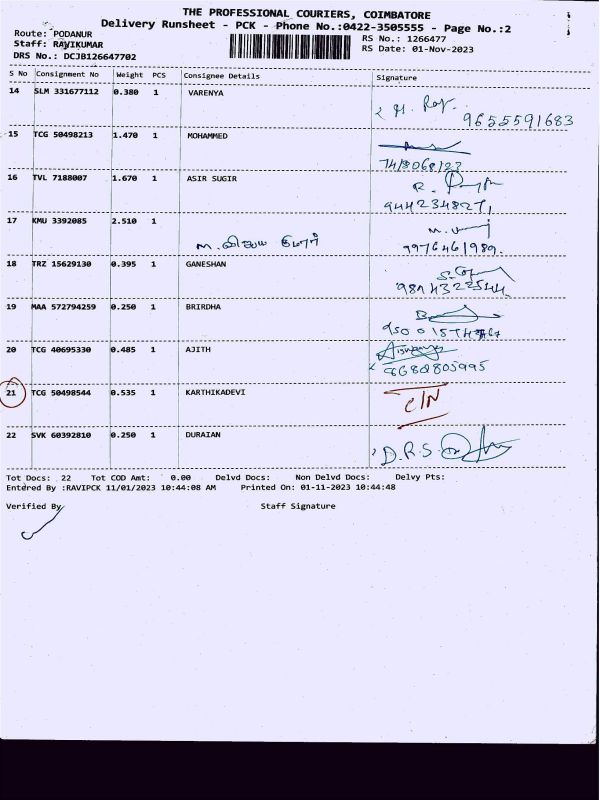 THE PROFESSIONAL COURIERS, COIMBATORE
Delivery Runsheet - PCK - Phone No.:0422-3505555 - Page No.:2
Route: PODANUR
RS No.: 1266477
Staff: RAVIKUMAR
RS Date: 01-Nov-2023
DRS No.: DCJB126647702
S No Consignment No Weight PCS Consignee Details Signature
14 SLM 331677112 0.380 1 VARENYA
9655591683
15 TCG 50498213 1.470 1 MOHAMMED
16 TVL 7188007 1.670 1 ASIR SUGIR
9442348271
17 KMU 3392085 2.510 1
M. விஜய குமார் 9976461989.
18 TRZ 15629130 0.395 1 GANESHAN
19 MAA 572794259 0.250 1 BRIRDHA
20 TCG 40695330 0.485 1 AJITH
21 TCG 50498544 0.535 1 KARTHIKADEVI
C/N
22 SVK 60392810 0.250 1 DURAIAN
D.R.S.
Tot Docs: 22 Tot COD Amt: 0.00 Delvd Docs: Non Delvd Docs: Delvy Pts:
Entered By :RAVIPCK 11/01/2023 10:44:08 AM Printed On: 01-11-2023 10:44:48
Verified By Staff Signature